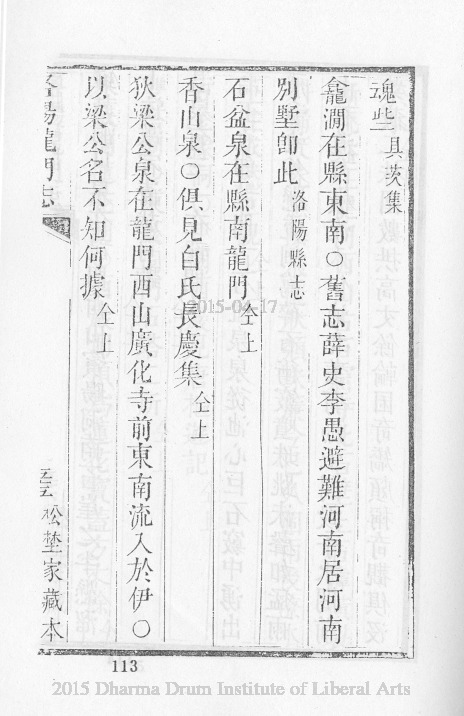 魂些 具茨集
龕澗在縣東南○舊志薛史李愚避難河南居河南
別墅卽此 洛陽縣志
石盆泉在縣南龍門 仝上
香山泉○俱見白氏長慶集 仝上
狄梁公泉在龍門西山廣化寺前東南流入於伊○
以梁公名不知何據 仝上
洛陽龍門志
松埜家藏本
113
2015-04-17
2015 Dharma Drum Institute of Liberal Arts